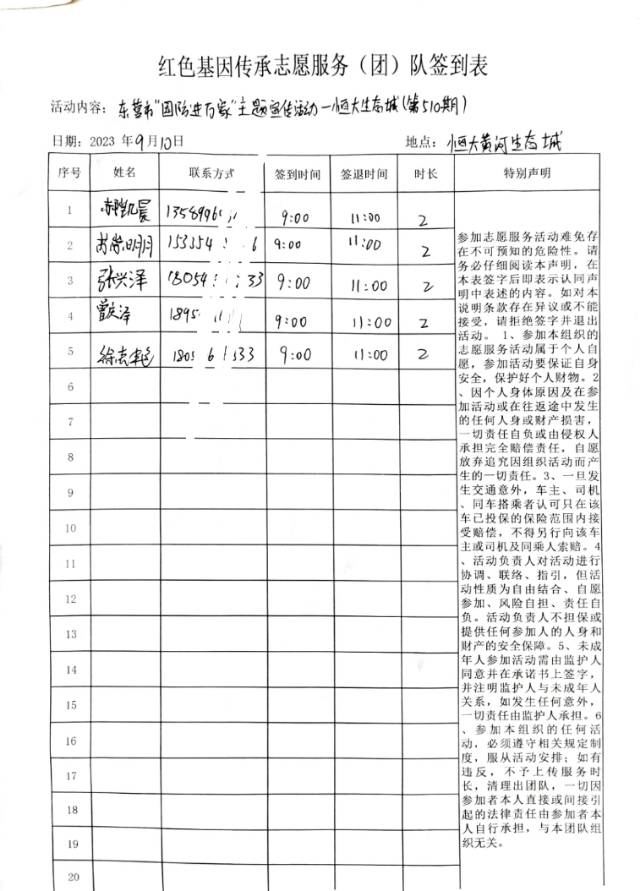 红色基因传承志愿服务（团）队签到表
活动内容：东营市“国防进万家”主题宣传活动—恒大生态城（第510期）
日期：2023年9月10日 地点：恒大黄河生态城
序号 姓名 联系方式 签到时间 签退时间 时长 特别声明
1 郝凯晨 1358996 9:00 11:00 2
2 尚尚明月 153354 6 9:00 11:00 2
3 张兴泽 18054 33 9:00 11:00 2
4 曾庆泽 1895 9:00 11:00 2
5 徐志艳 180 6 33 9:00 11:00 2
6
7
8
9
10
11
12
13
14
15
16
17
18
19
20
参加志愿服务活动难免存
在不可预知的危险性。请
务必仔细阅读本声明，在
本表签字后即表示认同声
明中表述的内容。如对本
说明条款存在异议或不能
接受，请拒绝签字并退出
活动。1、参加本组织的
志愿服务活动属于个人自
愿，参加活动要保证自身
安全，保护好个人财物。2
、因个人身体原因及在参
加活动或在往返途中发生
的任何人身或财产损害，
一切责任自负或由侵权人
承担完全赔偿责任，自愿
放弃追究因组织活动而产
生的一切责任。3、一旦发
生交通意外，车主、司机
、同车搭乘者认可只在该
车已投保的保险范围内接
受赔偿，不得另行向该车
主或司机及同乘人索赔。4
、活动负责人对活动进行
协调、联络、指引，但活
动性质为自由结合、自愿
参加、风险自担、责任自
负。活动负责人不担保或
提供任何参加人的人身和
财产的安全保障。5、未成
年人参加活动需由监护人
同意并在承诺书上签字，
并注明监护人与未成年人
关系，如发生任何意外，
一切责任由监护人承担。6
、参加本组织的任何活
动，必须遵守相关规定制
度，服从活动安排；如有
违反，不予上传服务时
长，清理出团队，一切因
参加者本人直接或间接引
起的法律责任由参加者本
人自行承担，与本团队组
织无关。